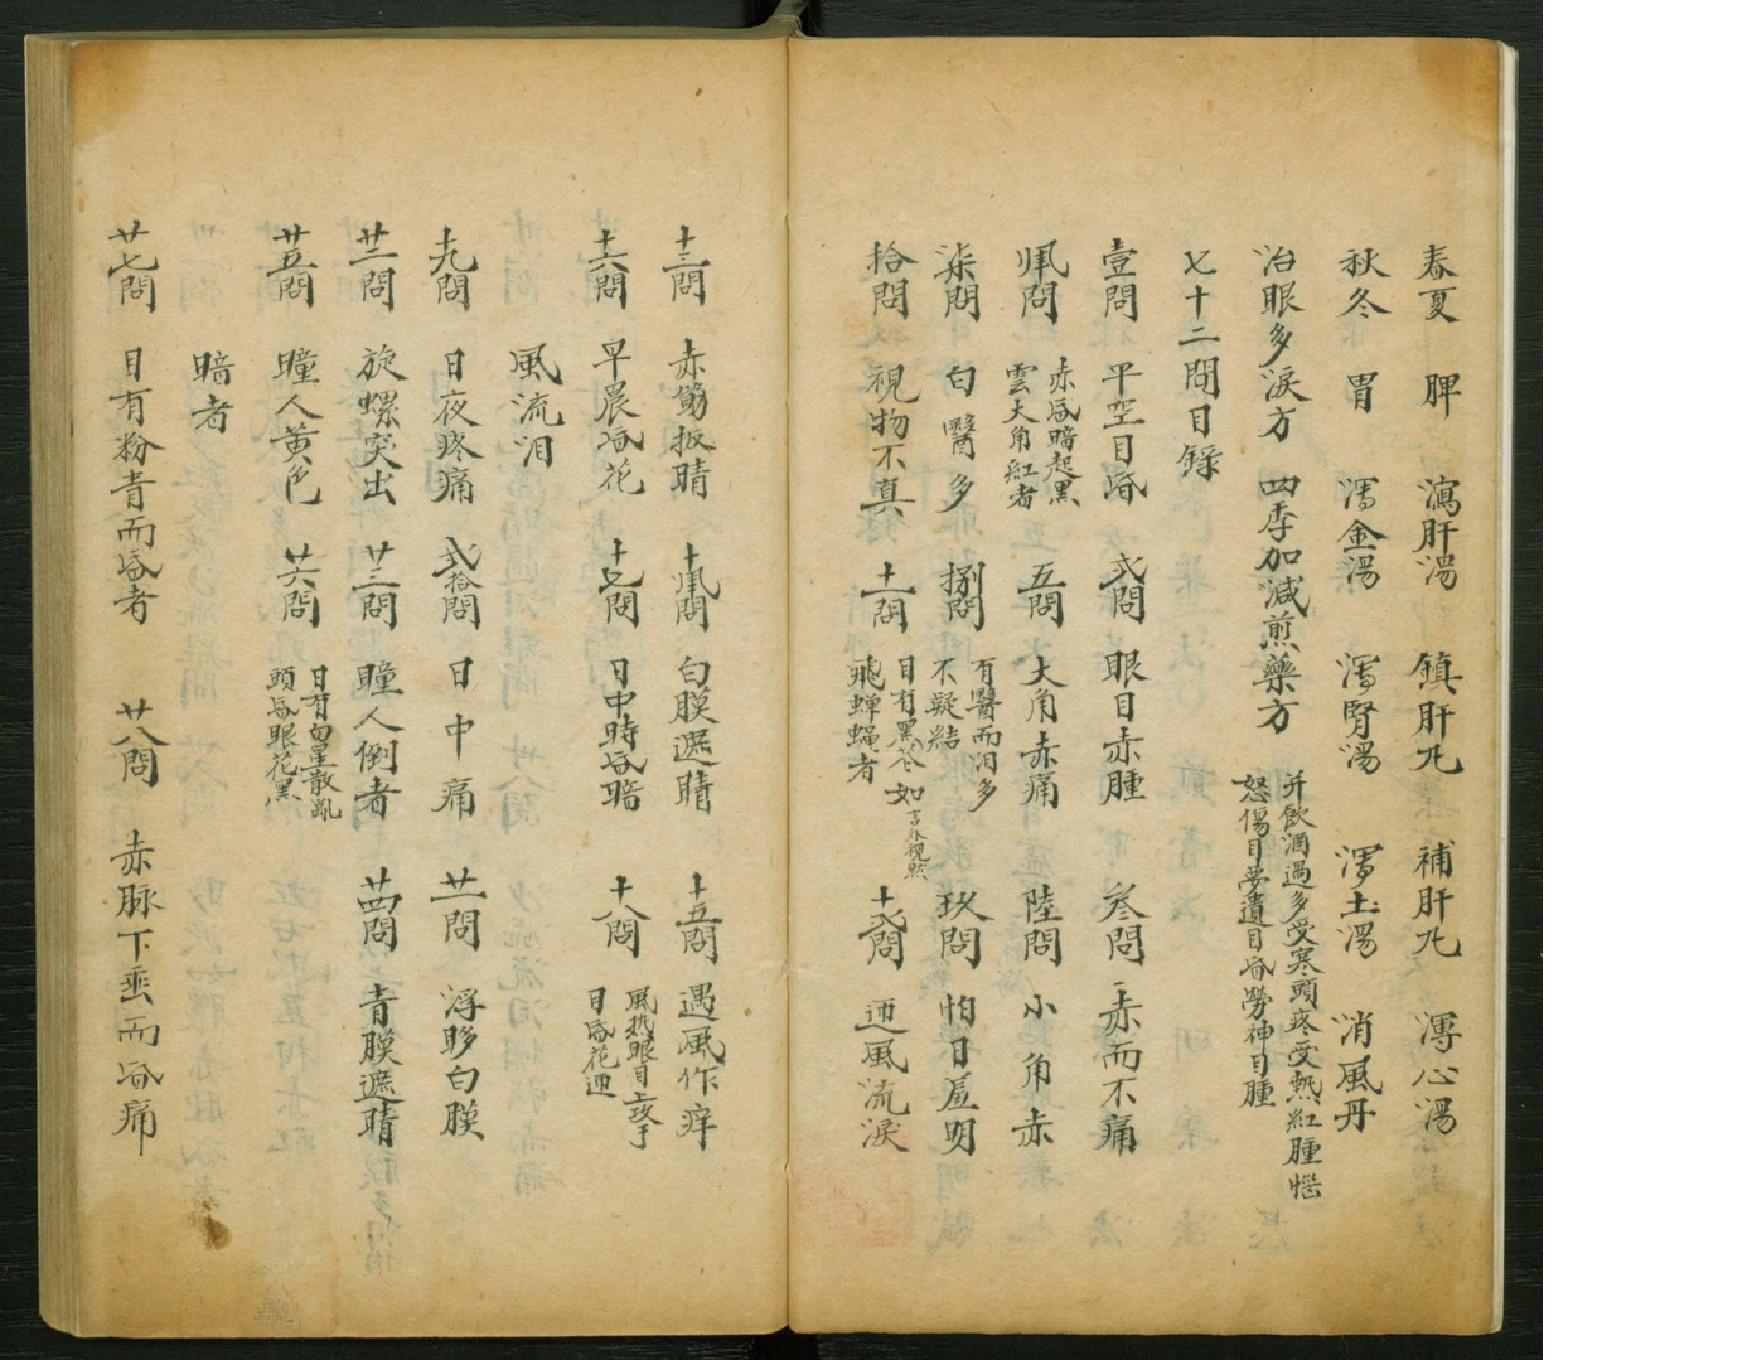 春夏 脾 瀉肝湯 鎮肝丸 補肝丸 瀉心湯
秋冬 胃 瀉金湯 瀉腎湯 瀉土湯 消風丹
治眼多淚方 四季加減煎藥方 并飲酒過多受寒頭疼受熱紅腫惱
怒傷目夢遺目昏勞神目腫
七十二問目錄
壹問 平空目昏 弍問 眼目赤腫 叄問 赤而不痛
肆問 赤昏暗起黑
雲大角紅者 五問 大角赤痛 陸問 小角赤
柒問 白醫多 捌問 有醫而泪多
不凝結 玖問 怕日羞明
拾問 視物不真 十一問 目有黑花如
飛蟬蠅者 十弍問 迎風流淚
十三問 赤筋扳睛 十肆問 白膜遮睛 十五問 遇風作痒
十六問 早晨昏花 十七問 日中時昏暗 十八問 風熱眼目上攻
目昏花迎
風流泪
十九問 日夜疼痛 弍拾問 日中痛 廿一問 浮眵白膜
廿二問 旋螺突出 廿三問 瞳人倒者 廿四問 青膜遮睛
廿五問 瞳人黄色 廿六問 日有白星散亂
頭昏眼花黑
暗者
廿七問 目有粉青而昏者 廿八問 赤脉下垂而昏痛